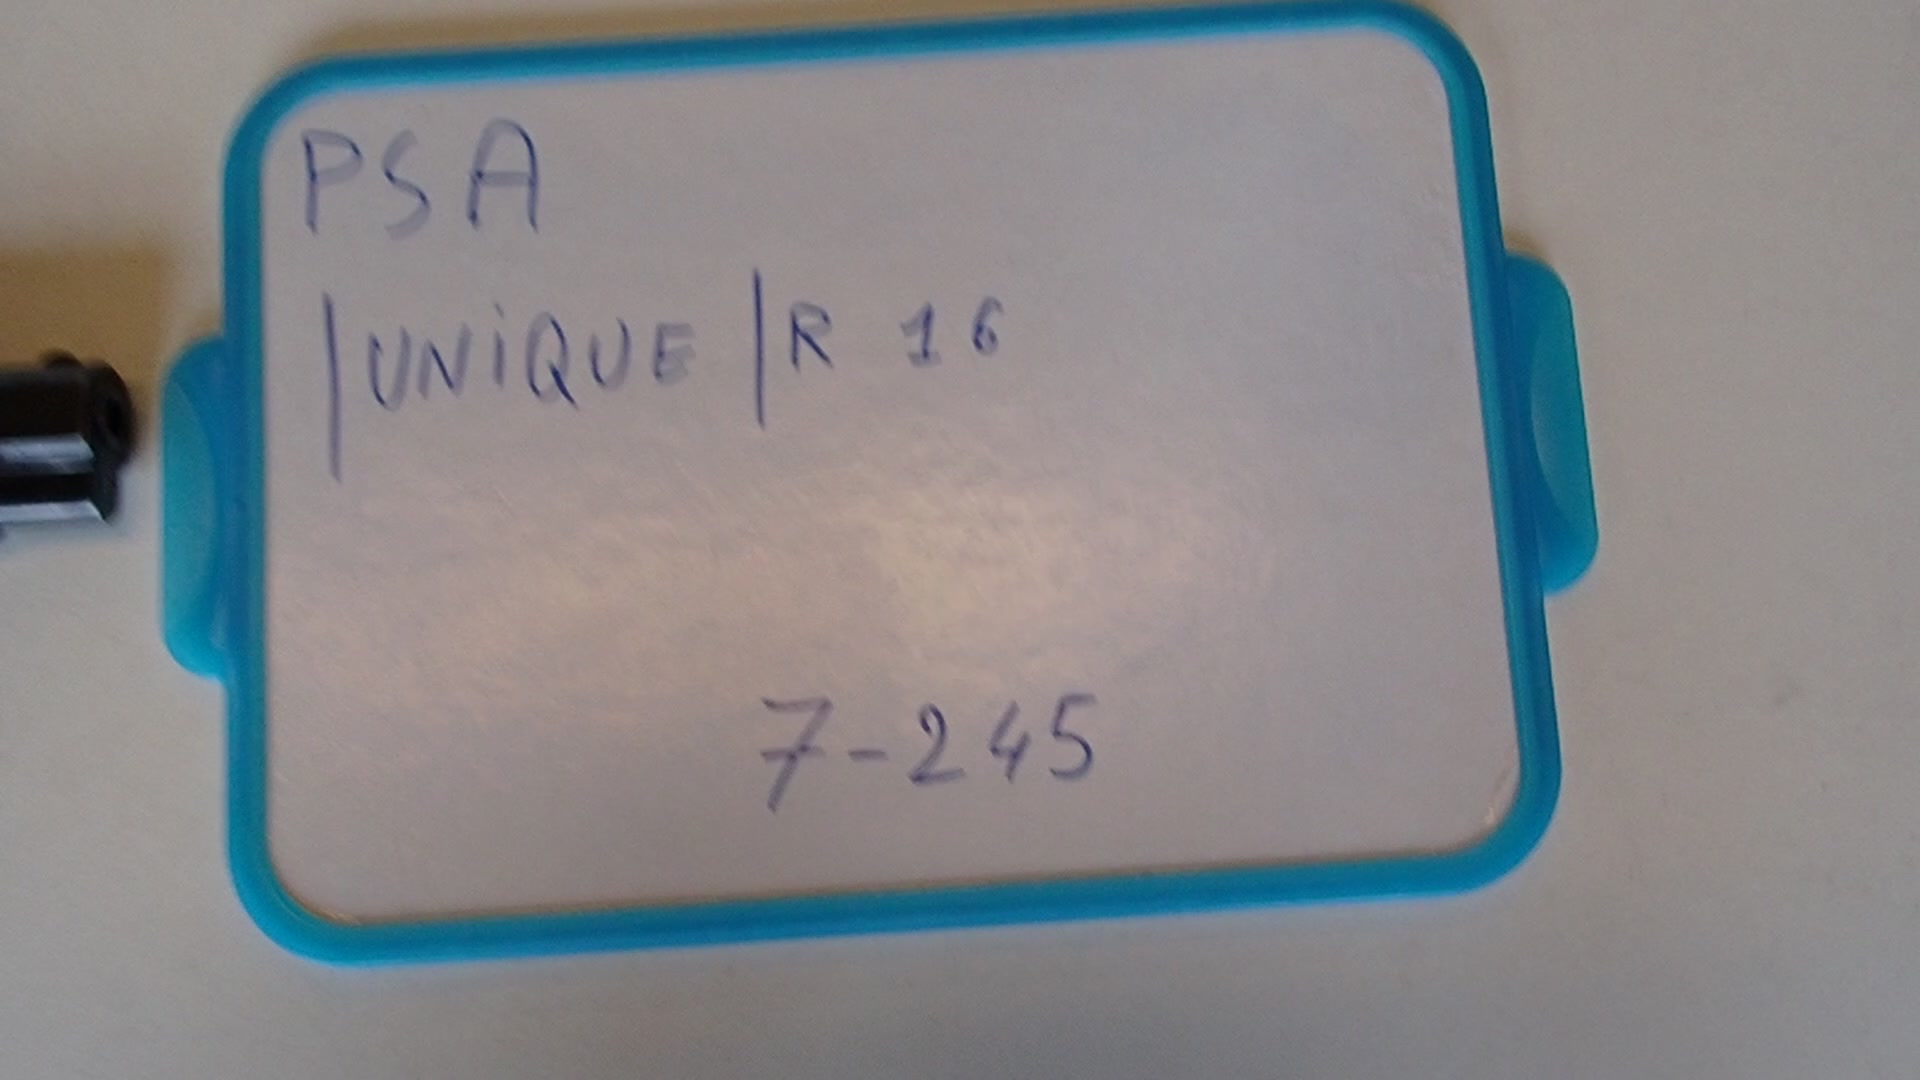 PSA
|UNiQUE|R 16
7-245